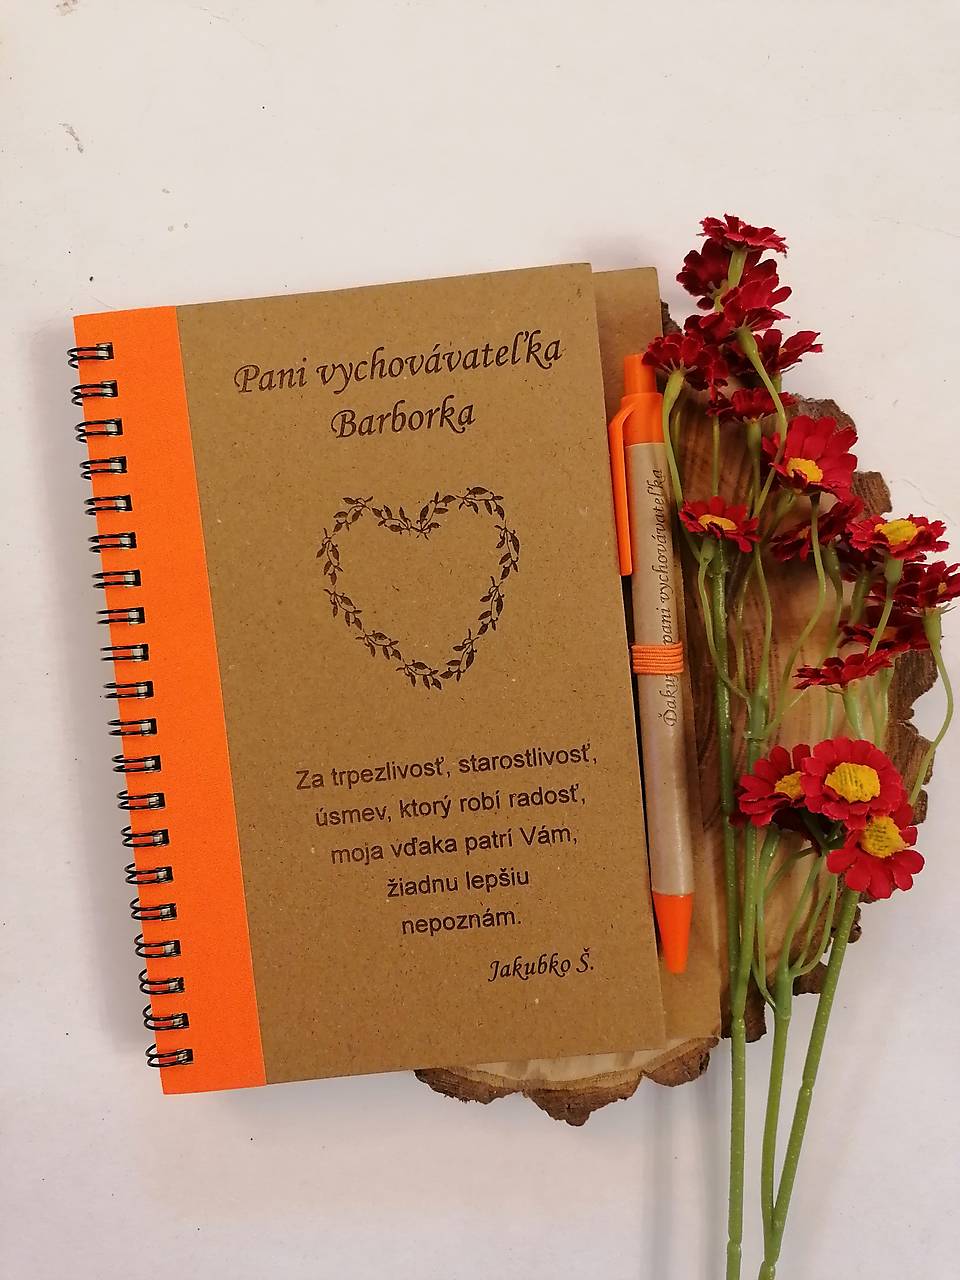 Pani vychovávateľka
Barborka
Za trpezlivosť, starostlivosť,
úsmev, ktorý robí radosť,
moja vďaka patrí Vám,
žiadnu lepšiu
nepoznám.
Jakubko Š.
pani vychovávateľka